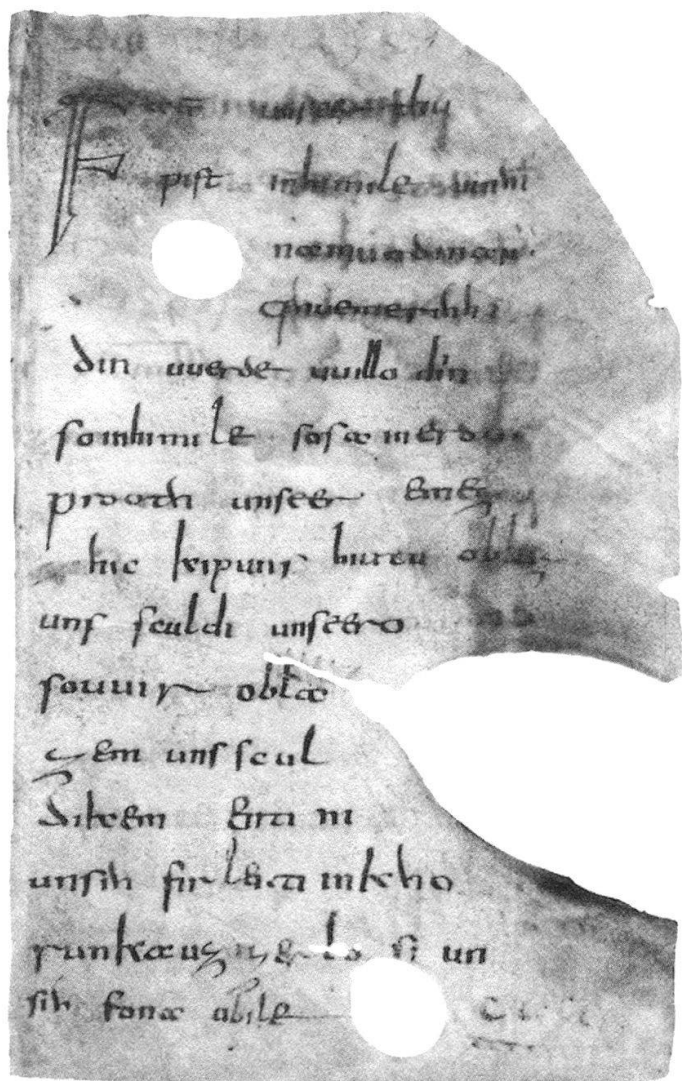 unseer thu
pist in himile uuihi
namun dinan
qhueme rihhi
din uuerde uuillo diin
so in himile sosa in erdu
prooth unseer emez
hic kip uns hiutu oblaz
uns sculdi unseero
so uuir obla
zem uns scul
dikem enti ni
unsih firleiti in kho
runka uzzer losi un
sih fona ubile